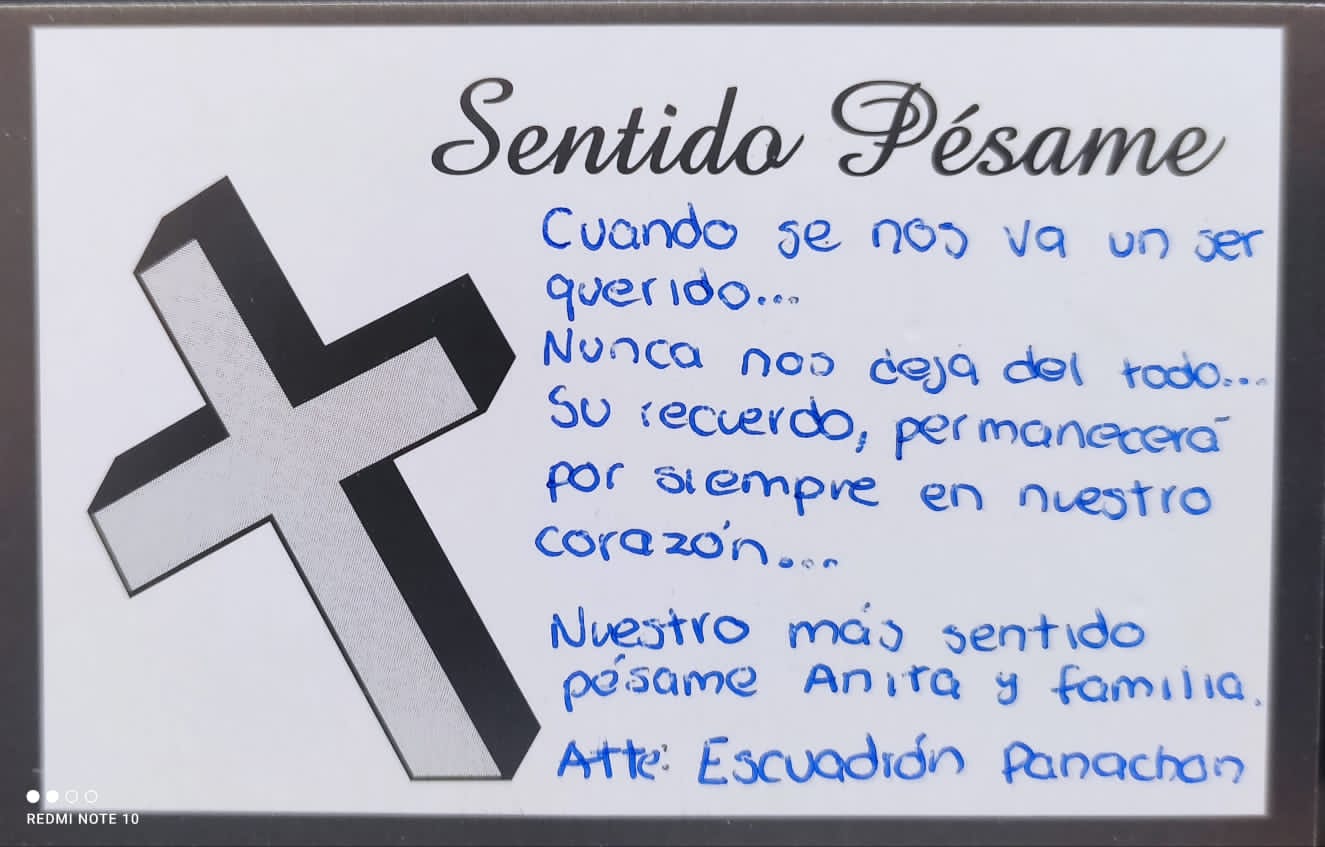 Sentido Pésame
Cuando se nos va un ser
querido...
Nunca nos deja del todo...
Su recuerdo, permanecerá
por siempre en nuestro
corazón...
Nuestro más sentido
pésame Anita y familia.
Atte: Escuadrón Panachon
REDMI NOTE 10